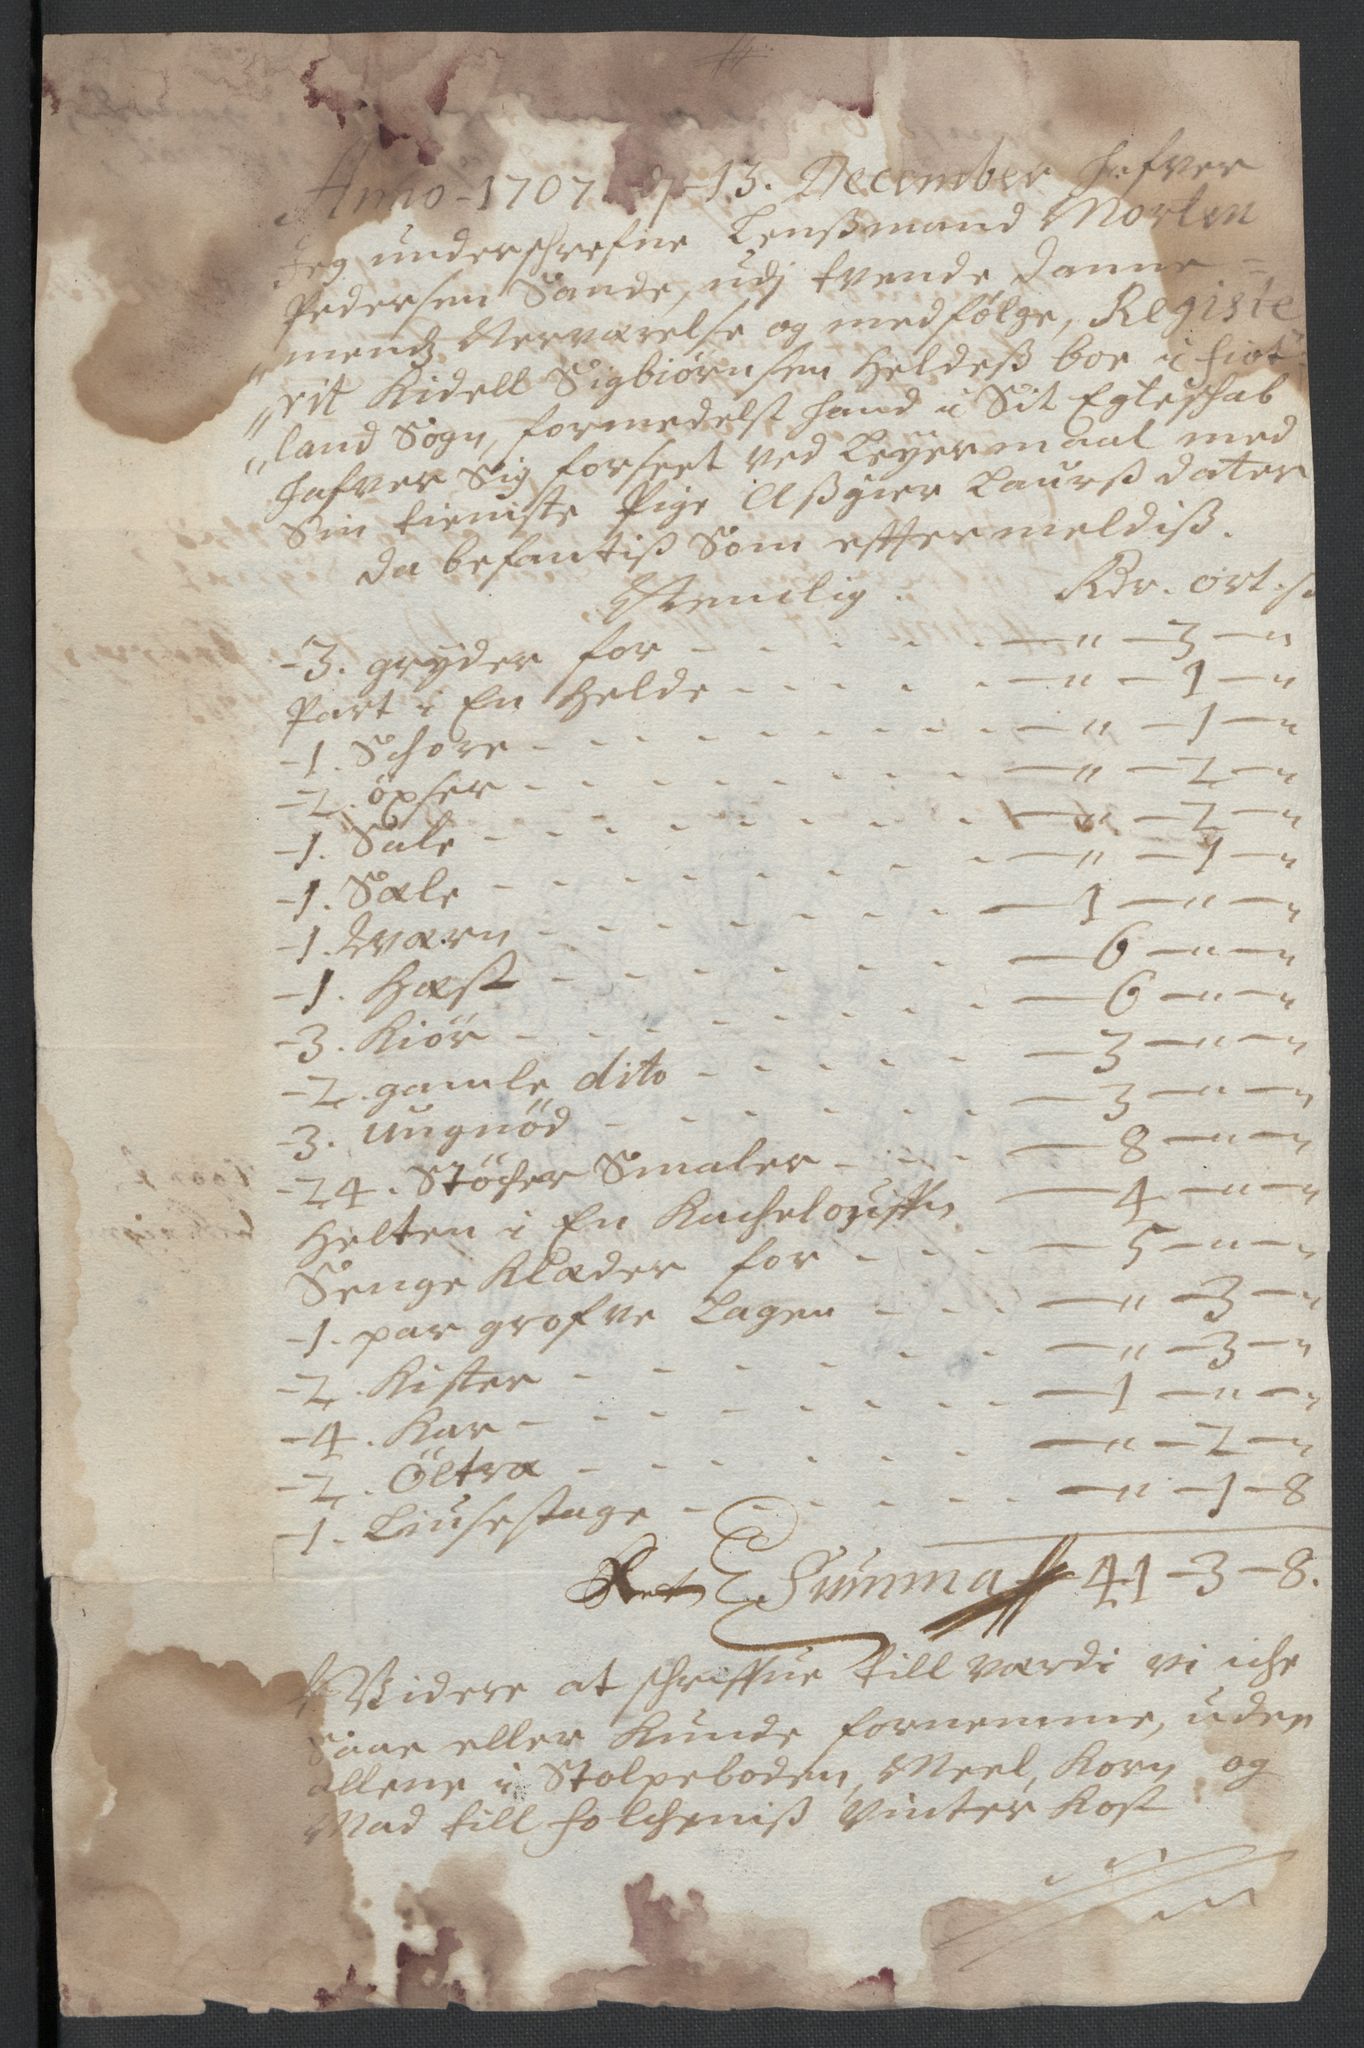 Anno - 1707 d - 13. December hafver
Jeg underschrefne Lenßmand Morten
Pedersen Sande, udj tvende danne =
mends Nerværelse og medfølge, Registe
rit Kidell Sigbiørnsen Heldeß boe i hiet
land Sogn, formedelst hand i Sit Egteschab
hafver Sig forseet ved Leyermaal med
Sin tieniste Pige Aßgier Laurß dater
da befantiß Som effter meldiß.
Nemlig. Rdr. ort. ß
-3. gryder for - - - - - — " — 3 — "
Part i En Helde - - - - - — " — 1 — "
-1. Schore - - - - - — " — 1 — "
-2. öxser - - - - - — " — 2 — "
-1. Sale - - - - - — " — 2 — "
-1. Sæle - - - - - — " — 1 — "
-1. Qværn - - - - - — 1 — " — "
-1. Hæst - - - - - — 6 — " — "
-3. Kiör - - - - - — 6 — " — "
-2. gamle dito - - - - - — 3 — " — "
-3. ungnöd - - - - - — 3 — " — "
-24. Stöcher Smaler - - - — 8 — " — "
Helten i En Kachelouffn — 4 — " — "
Senge Klæder for - - - — 5 — " — "
-1. par grofve Lagen - - - — " — 3 — "
-2. Kister - - - - - — " — 3 — "
-4. Kar - - - - - — 1 — " — "
-2. Öltræ - - - - - — " — 2 — "
-1. Liusestage - - - - - — " — 1 — 8
Summa 41 - 3 - 8.
Widere at schriffue till værdi vi iche
Saae eller Kunde fornemme, uden
allene i Stolpeboden, Meel, Korn og
Mad till folcheniß Vinter Kost